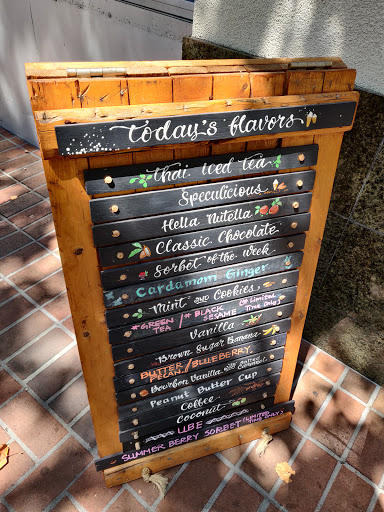 today's flavors
thai iced tea
Speculicious
Hella Nutella
Classic Chocolate
Sorbet of the week
Cardamom Ginger
Mint and Cookies
*GREEN TEA / *BLACK SESAME (*Limited Time Only)
Vanilla
Brown Sugar Banana
BUTTER PECAN / BLUEBERRY
Bourbon Vanilla with Salted Caramel
Peanut Butter Cup
Coffee
Coconut
UBE (LIMITED TIME ONLY)
SUMMER BERRY SORBET